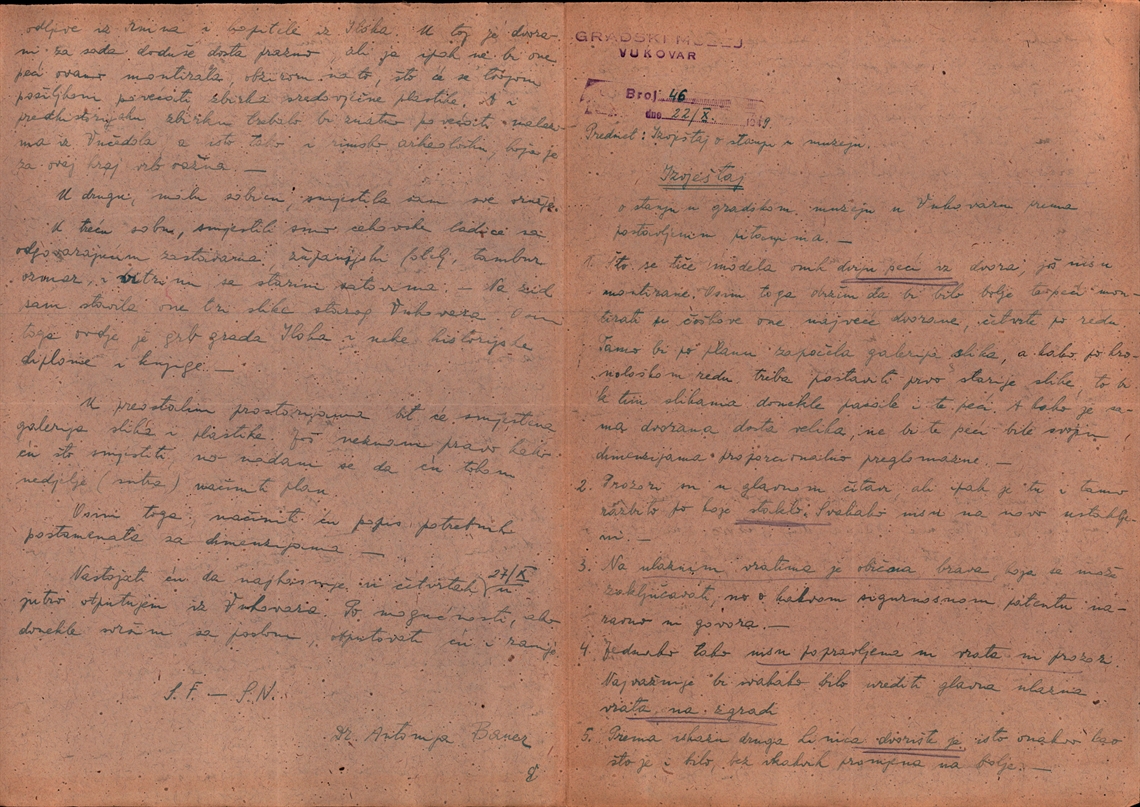 odljeve iz Knina i kapitele iz Iloka. U toj je dvora-
ni za sada doduše dosta prazno, ali ja ipak ne bi one
peći ovamo montirala, obzirom na to, što će se Vašom
pošiljkom povećati zbirka sredovječne plastike. A i
predhistorijsku zbirku trebalo bi znatno povećati nalazi-
ma iz Vučedola, a isto tako i rimsku arheološku, koja je
za ovaj kraj vrlo važna. —
U drugu, malu sobicu, smjestila sam sve oružje.
U treću sobu, smjestili smo cehovske ladice sa
odgovarajućim zastavama, županijski stolj, tambur
ormar, i vitrinu sa starim satovima. — Na zid
sam stavila one tri slike starog Vukovara. Osim
toga ovdje je grb grada Iloka i neke historijske
diplome i knjige. —
U preostalim prostorijama bit će smještena
galerija slika i plastike. Još neznam pravo kako
ću što smjestiti, no nadam se da ću tokom
nedjelje (sutra) načiniti plan.
Osim toga, načiniti ću popis potrebnih
postamenata sa dimenzijama —
Nastojati ću da najkasnije u četvrtak, 27/X u
jutro otputujem iz Vukovara. Po mogućnosti, ako
donekle svršim sa poslom, otputovati ću i ranije.
S. F. — S. N.
Dr. Antonija Bauer
GRADSKI MUZEJ
VUKOVAR
Broj 46
dne 22/X. 1949
Predmet: Izvještaj o stanju u muzeju.
Izvještaj
o stanju u gradskom muzeju u Vukovaru prema
postavljenim pitanjima. —
1. Što se tiče modela onih dviju peći iz dvora, još nisu
montirane. Osim toga držim da bi bilo bolje te peći mon-
tirati u ćoškove one najveće dvorane, četvrte po redu.
Tamo bi po planu započela galerija slika, a kako po kro-
nološkom redu treba postaviti prvo starije slike, to bi
k tim slikama donekle pasale i te peći. A kako je sa-
ma dvorana dosta velika, ne bi te peći bile svojim
dimenzijama proporcionalno preglomazne. —
2. Prozori su u glavnom čitavi, ali ipak je tu i tamo
razbito po koje staklo. Svakako nisu na novo ustaklje-
ni. —
3. Na ulaznim vratima je obična brava, koja se može
zaključavati, no o kakvom sigurnosnom patentu na-
ravno ni govora. —
4. Jednako tako nisu popravljena ni vrata ni prozori.
Najvažnije bi svakako bilo urediti glavna ulazna
vrata na zgradi
5. Prema iskazu druga dvorište je isto onakvo kao
što je i bilo, bez ikakvih promjena na bolje. —